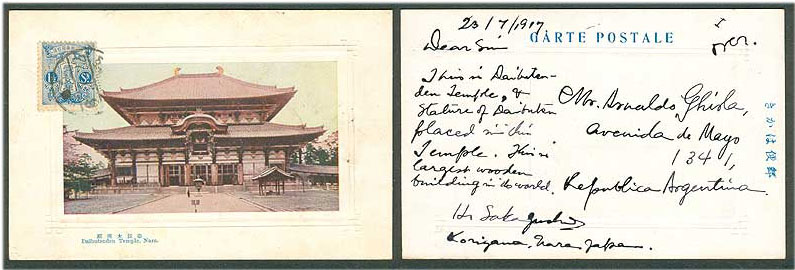 Daibutsuden Temple, Nara.
23/7/1917
CARTE POSTALE
Dear Sir
This is Daibutsu-
den Temple, &
Stature of Daibutsu
placed within
Temple. This is
largest wooden
building in its world.
Mr. Arnaldo Ghisla,
Avenida de Mayo
1341,
Republica Argentina.
きかは便郵
H. Sakaguchi
Koriyama, Nara Japan.